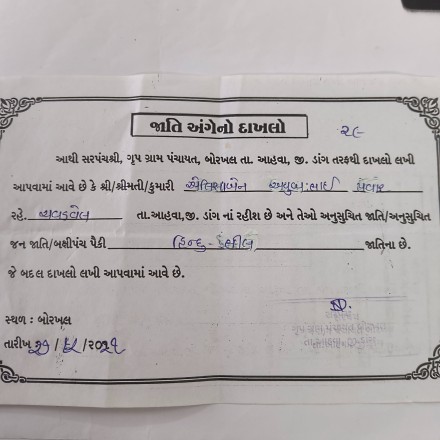 જાતિ અંગેનો દાખલો
૨/-
આથી સરપંચશ્રી, ગૃપ ગ્રામ પંચાયત, બોરખલ તા. આહવા, જી. ડાંગ તરફથી દાખલો લખી
આપવામાં આવે છે કે શ્રી/શ્રીમતી/કુમારી પવાર
રહે. તા.આહવા,જી. ડાંગ નાં રહીશ છે અને તેઓ અનુસુચિત જાતિ/અનુસુચિત
જન જાતિ/બક્ષીપંચ પૈકી હિન્દુ - જાતિના છે.
જે બદલ દાખલો લખી આપવામાં આવે છે.
સ્થળ : બોરખલ
તારીખ /૨૦૨૧